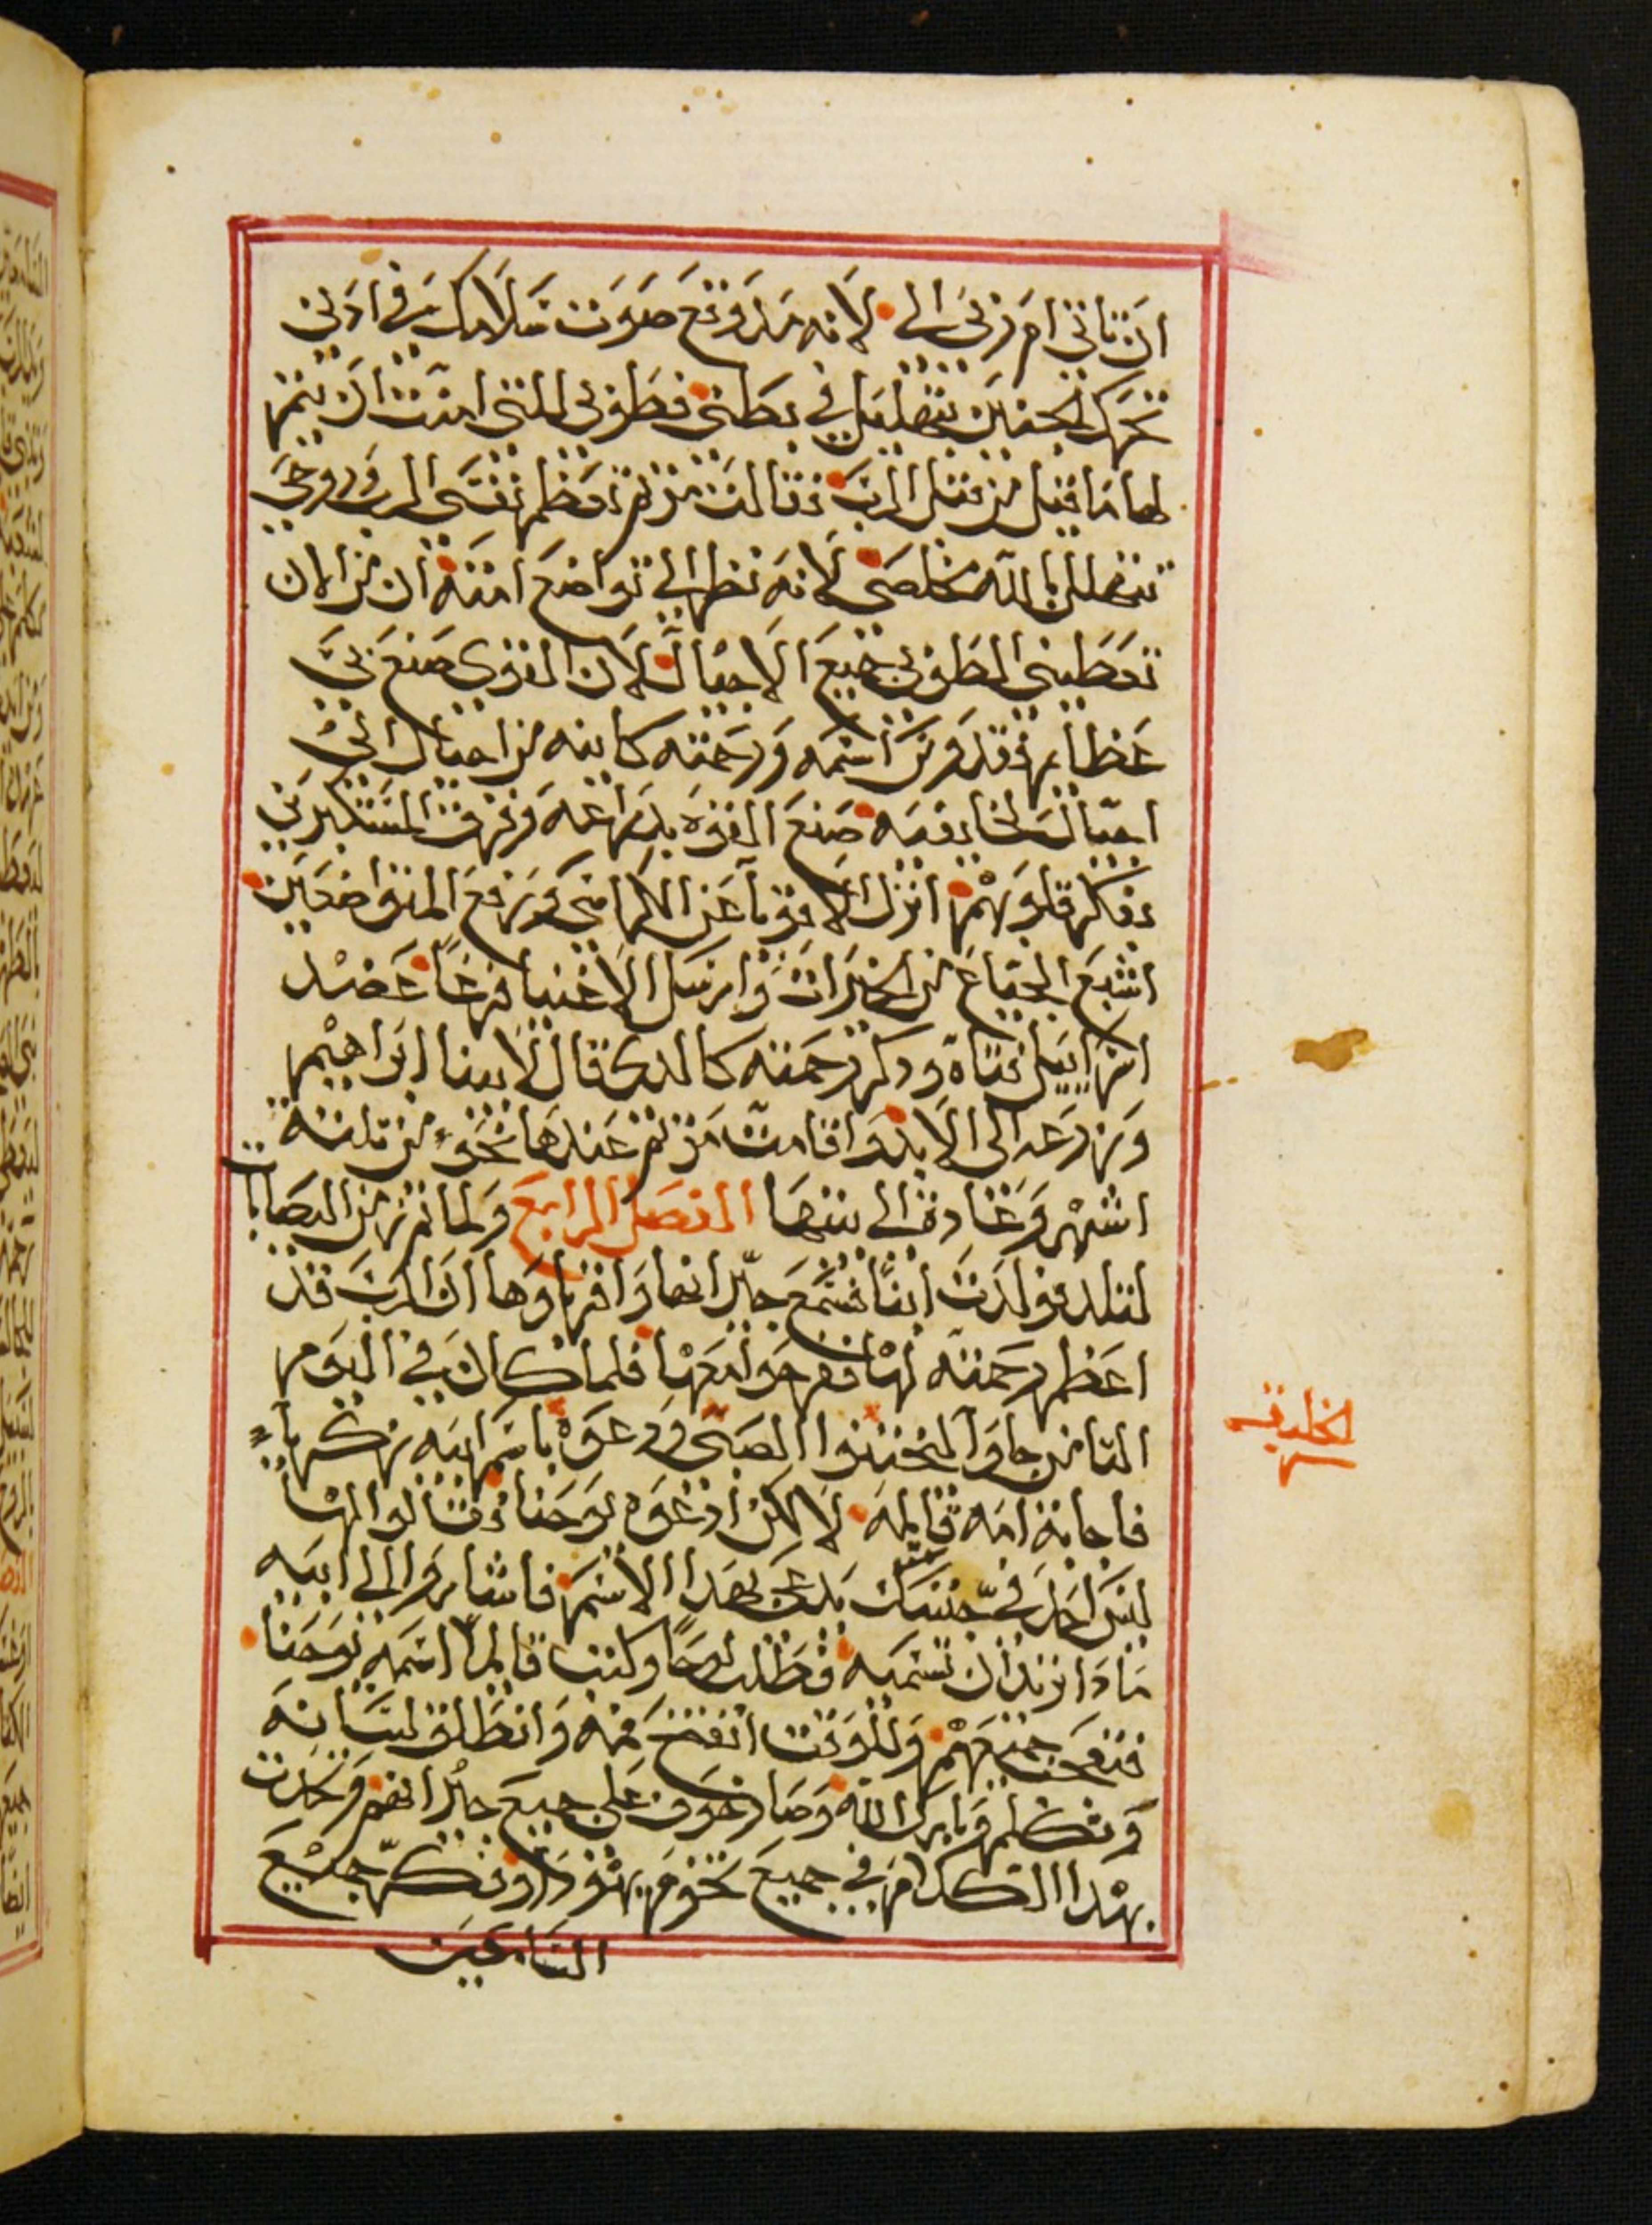 ان تاتي ام ربي الي لانه مذ وقع صوت سلامك في ادني
تحرك الجنين بتهليل في بطني فطوبي للتي امنت ان يتم
لها ما قيل من قبل الرب فقالت مريم تعظم نفسي الرب وروحي
تتهلل بالله مخلصي لانه نظر الي تواضع امته ان من الان
تعطيني الطوبي جميع الاجيال لان القوي صنع بي
عظايم وقدوس اسمه ورحمته كاينه من اجيال الي
اجيال لخايفيه صنع القوه بدراعه وفرق المستكبرين
بفكر قلوبهم انزل الاقويا عن الكراسي ورفع المتواضعين
اشبع الجياع من الخيرات وارسل الاغنيا فرغاً عضد
اسراييل فتاه وذكر رحمته كالدي قال لابينا ابراهيم
وزرعه الى الابد واقامت مريم عندها نحو من تلته
اشهر وعادت الي بيتها الفصل الرابع ولما تم زمن اليصابات
لتلد فولدت ابناً فسمع جيرانها واقرباوها ان الرب قد
اعظم رحمته لها ففرحوا معها فلما كان في اليوم
التامن جاوا ليختنوا الصبي ودعوه باسم ابيه زكريا
فاجابة امه قايله لا لكن ادعوه يوحنا فقالوا لها
ليس احد في جنسك يدعى بهدا الاسم فاشاروا الي ابيه
مادا تريد ان تسميه فطلب لوحاً وكتب قايلاً اسمه يوحنا
فتعجب جميعهم وللوقت انفتح فمه وانطلق لسانه
وتكلم وبارك الله وصار خوف على جميع جيرانهم وتحدت
بهدا الكلام في جميع تخوم يهودا وفكر جميع
السامعين
الخليقه